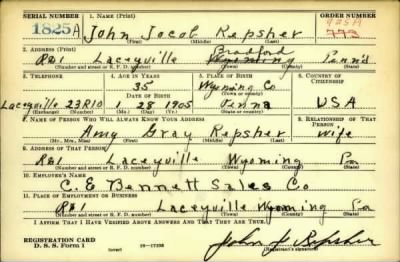 SERIAL NUMBER 1. NAME (Print) ORDER NUMBER
1825A John Jacob Repsher 925A
(First) (Middle) (Last) 773
2. ADDRESS (Print) Bradford
R#1 Laceyville Wyoming Penn's
(Number and street or R. F. D. number) (Town) (County) (State)
3. TELEPHONE 4. AGE IN YEARS 5. PLACE OF BIRTH 6. COUNTRY OF CITIZENSHIP
35 Wyoming Co
DATE OF BIRTH (Town or county)
Laceyville 23R10 1 28 1905 Penna USA
(Exchange) (Number) (Mo.) (Day) (Yr.) (State or country)
7. NAME OF PERSON WHO WILL ALWAYS KNOW YOUR ADDRESS 8. RELATIONSHIP OF THAT PERSON
Amy Gray Repsher Wife
(Mr., Mrs., Miss) (First) (Middle) (Last)
9. ADDRESS OF THAT PERSON
R#1 Laceyville Wyoming Pa
(Number and street or R. F. D. number) (Town) (County) (State)
10. EMPLOYER'S NAME
C. E Bennett Sales Co
11. PLACE OF EMPLOYMENT OR BUSINESS
R#1 Laceyville Wyoming Pa
(Number and street or R. F. D. number) (Town) (County) (State)
I AFFIRM THAT I HAVE VERIFIED ABOVE ANSWERS AND THAT THEY ARE TRUE.
REGISTRATION CARD
D. S. S. Form 1 (over) 16-17105 John J Repsher
(Registrant's signature)